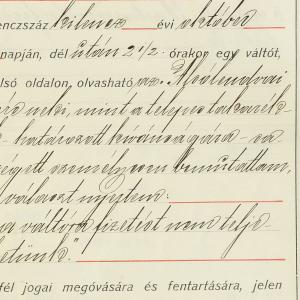 enczszáz kilencz évi október
napján, dél után 2 1/2 órakor egy váltót,
lső oldalon, olvasható az Alsólendvai
neki, mint a telepes takarék-
határozott kívánságára
személynem bemutattam,
választ nyertem:
a váltója fizetést nem telje-
hetünk."
fél jogai megóvására és fentartására, jelen